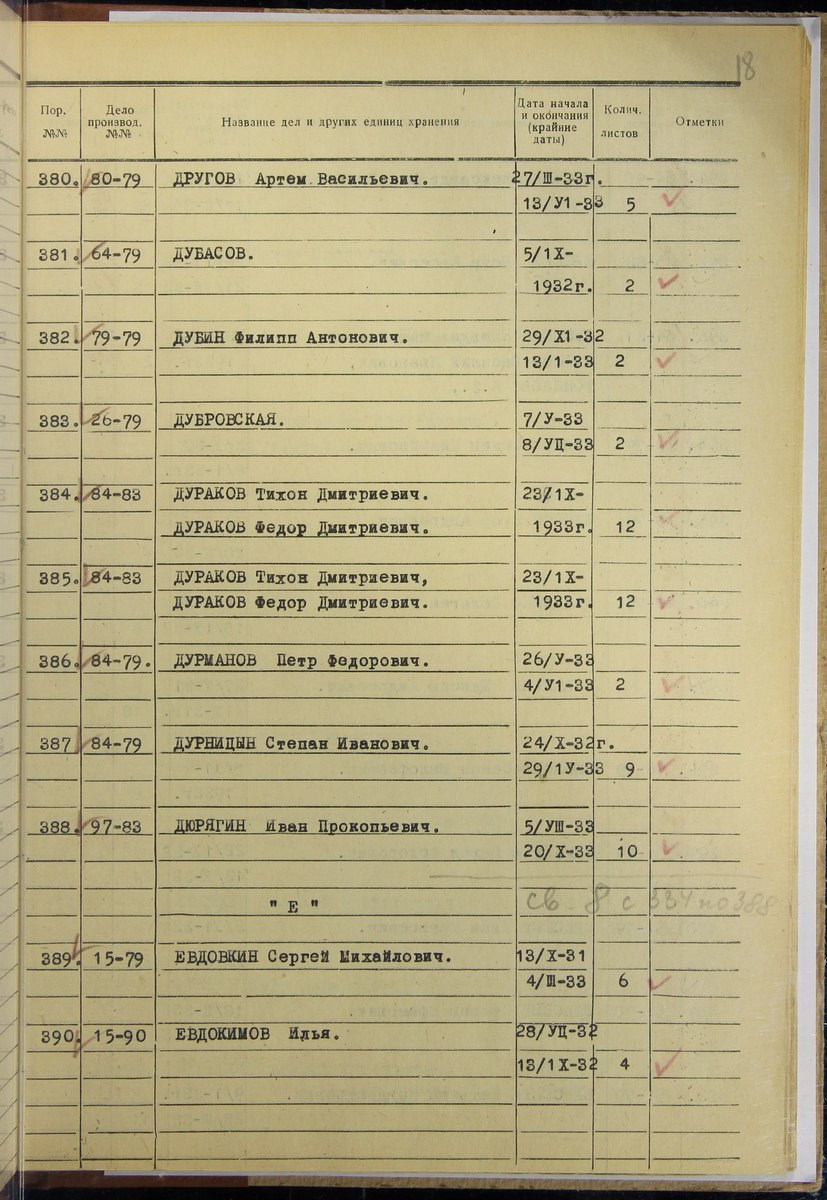 18
Пор. №№ Дело производ. №№ Название дел и других единиц хранения Дата начала и окончания (крайние даты) Колич. листов Отметки
380. 80-79 ДРУГОВ Артем Васильевич. 27/Ш-33г.
13/У1-33 5
381. 64-79 ДУБАСОВ. 5/1Х-
1932г. 2
382. 79-79 ДУБИН Филипп Антонович. 29/Х1-32
13/1-33 2
383. 26-79 ДУБРОВСКАЯ. 7/У-33
8/УЦ-33 2
384. 84-83 ДУРАКОВ Тихон Дмитриевич. 23/1Х-
ДУРАКОВ Федор Дмитриевич. 1933г. 12
385. 84-83 ДУРАКОВ Тихон Дмитриевич, 23/1Х-
ДУРАКОВ Федор Дмитриевич. 1933г. 12
386. 84-79. ДУРМАНОВ Петр Федорович. 26/У-33
4/У1-33 2
387 84-79 ДУРНИЦЫН Степан Иванович. 24/Х-32г.
29/1У-33 9
388. 97-83 ДЮРЯГИН Иван Прокопьевич. 5/УШ-33
20/Х-33 10
" Е " св. 8 с 334 по 388
389. 15-79 ЕВДОВКИН Сергей Михайлович. 13/Х-31
4/Ш-33 6
390. 15-90 ЕВДОКИМОВ Илья. 28/УЦ-32
13/1Х-32 4